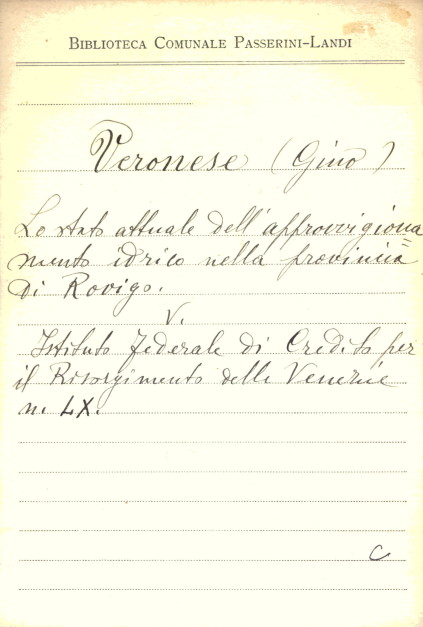 BIBLIOTECA COMUNALE PASSERINI-LANDI
Veronese (Gino)
Lo stato attuale dell'approvvigiona=
mento idrico nella provincia
di Rovigo.
V.
Istituto Federale di Credito per
il Risorgimento delle Venezie
n. LX.
C